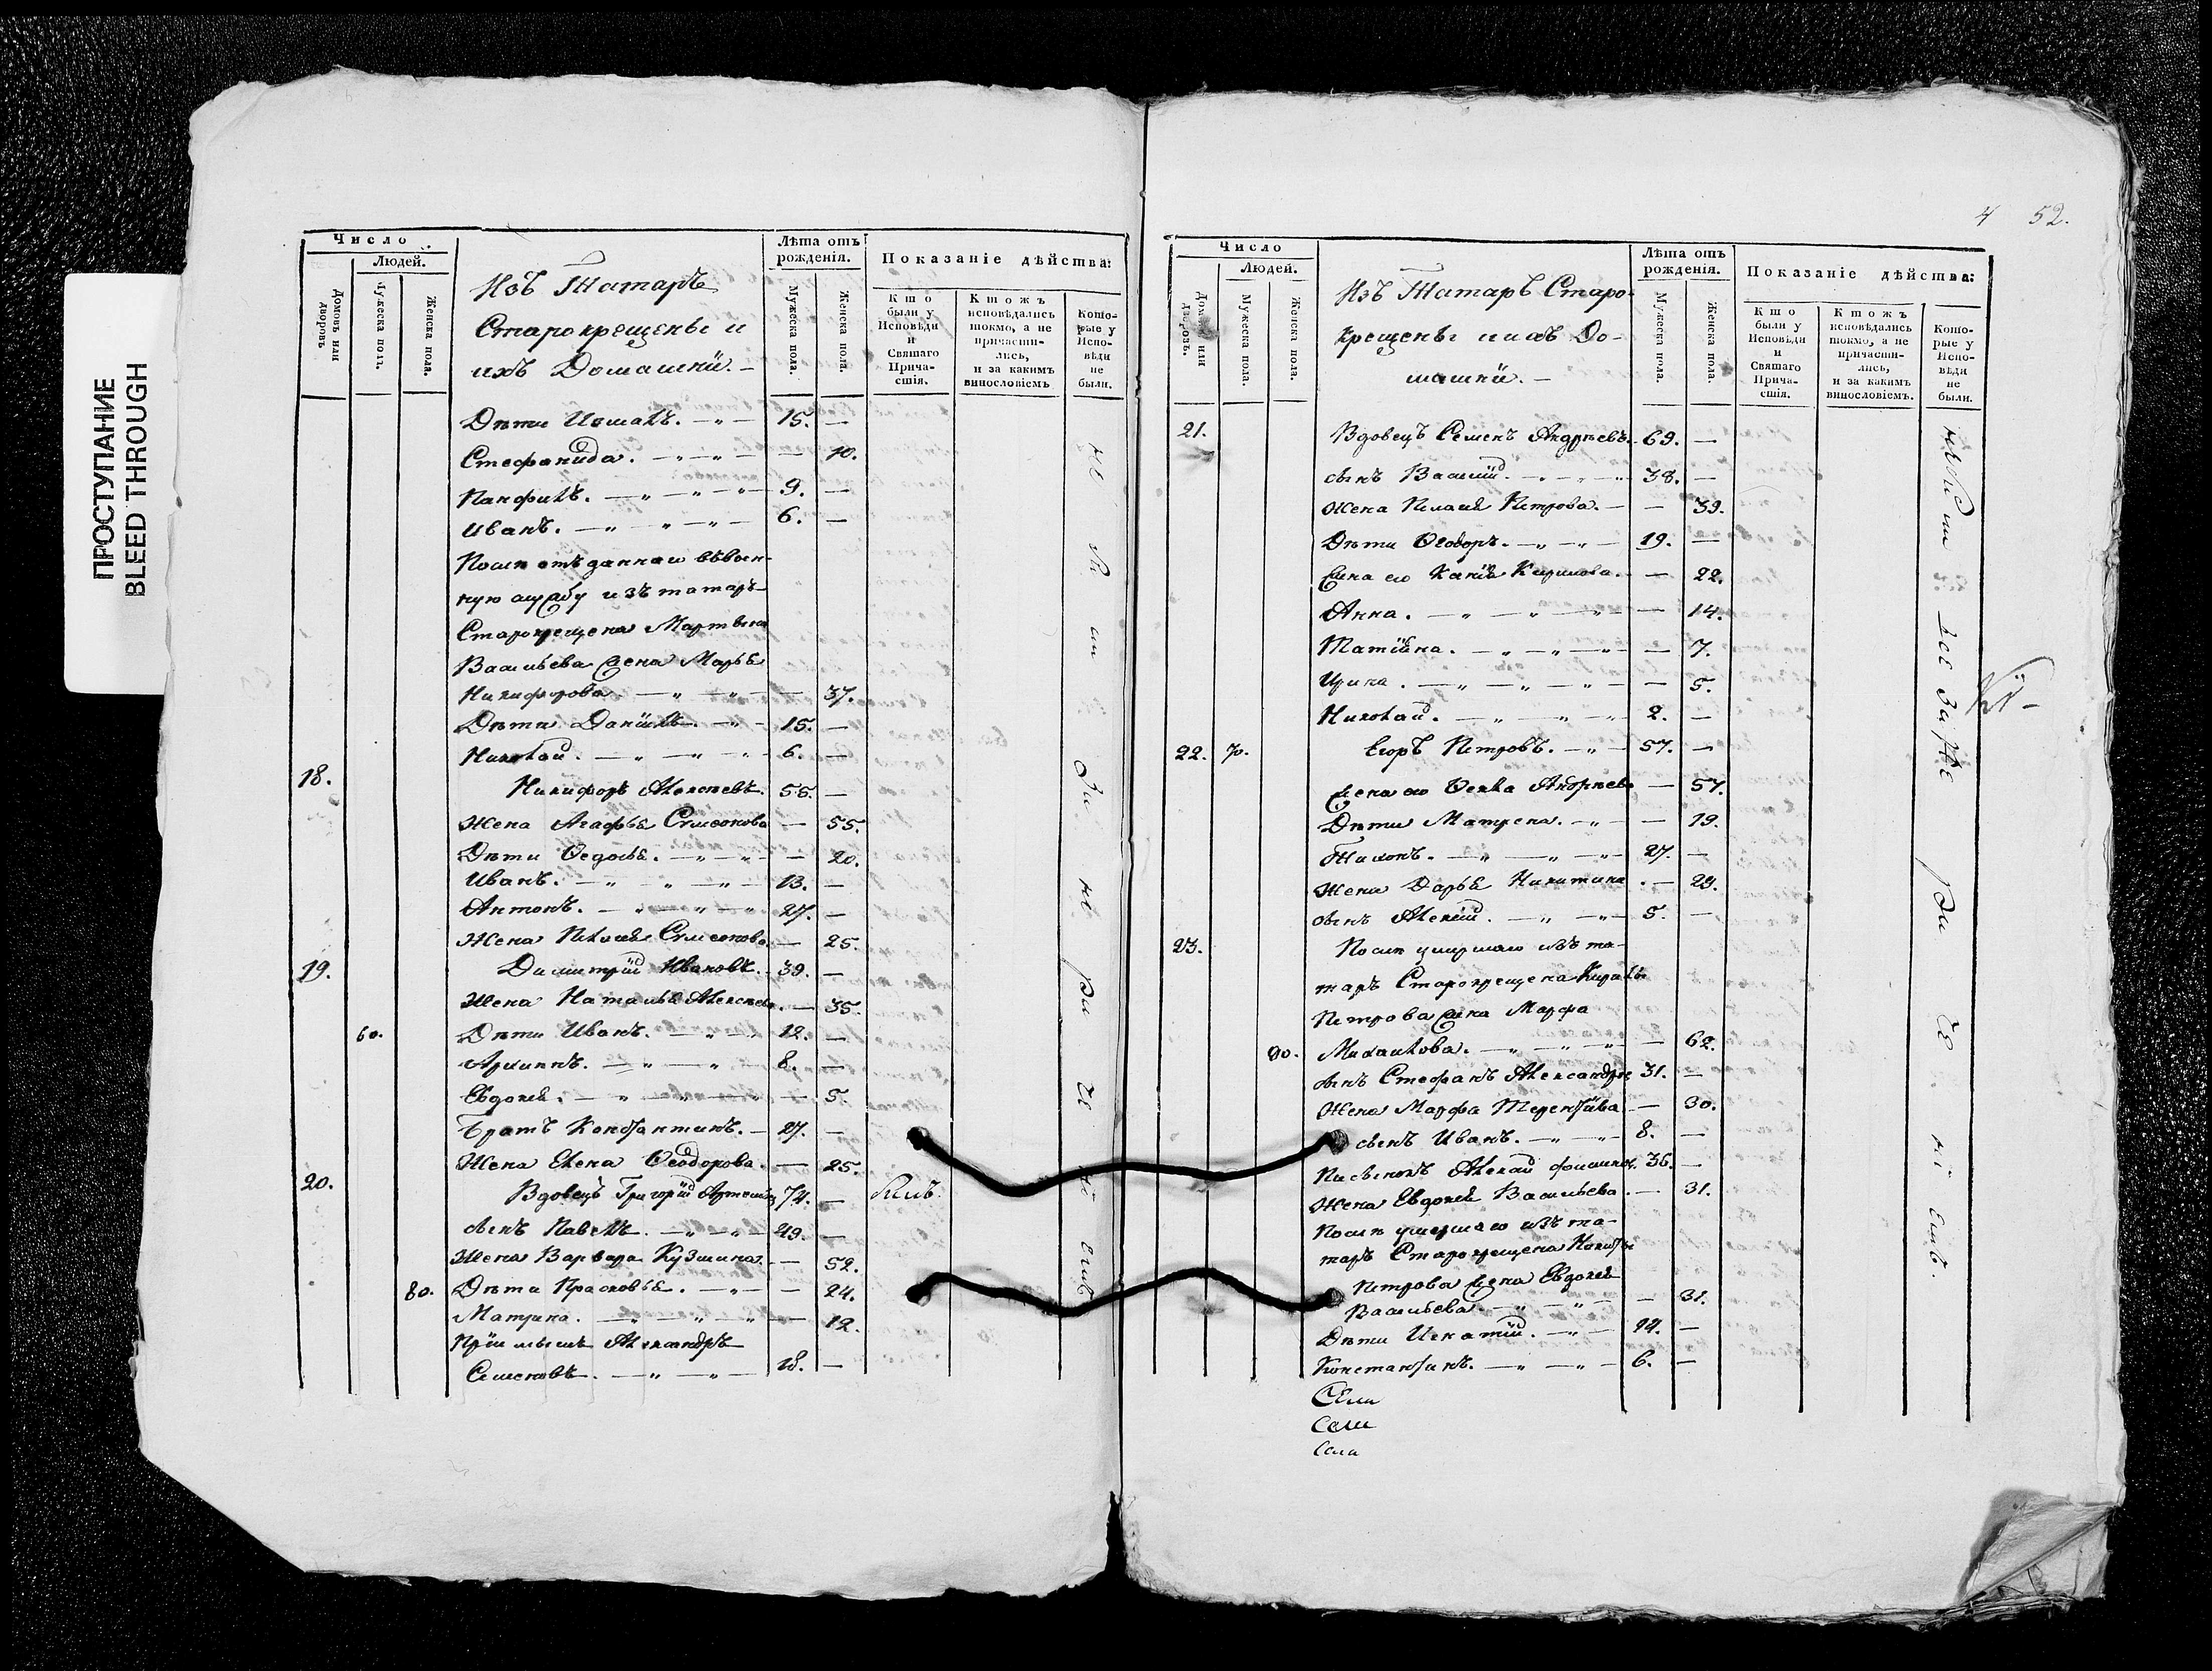 ПРОСТУПАНИЕ
BLEED THROUGH
Число
Людей.
Домовъ или дворовъ.
Мужеска полъ.
Женска пола.
Изъ Татаръ
Старокрещены и
ихъ Домашнїи.
Лѣта отъ
рожденія.
Мужеска пола.
Женска пола.
Показаніе дѣйства:
Кто
были у
Исповѣди
и
Святаго
Прича-
стія.
Ктожъ
исповѣдались
токмо, а не
причасти-
лись,
и за какимъ
винословіемъ
Кото-
рые у
Испо-
вѣди
не
были.
Дѣти 15. —
Стефанида. — 10.
Панфилъ. 9. —
Иванъ. 6. —
Послѣ отъданнаго въвоен-
ную службу изъ татаръ
Старокрещена Мартына
Васильева жена Марья
Никифорова — 37.
Дѣти Данїилъ. 15. —
Николай. 6. —
18. Никифоръ Алексѣевъ. 55. —
Жена Агафья Симеонова — 55.
Дѣти Ѳедосья. — 20.
Иванъ. 13. —
Антонъ. 27. —
Жена Пелагея Симеонова — 25.
19. Димитрїй Ивановъ. 39. —
Жена Наталья Алексѣева. — 35.
60. Дѣти Иванъ. 12. —
8. —
Евдокея. — 5.
Братъ Константинъ. 27. —
Жена Елена Ѳеодорова. — 25.
20. Вдовецъ Григорїй 74. — былъ
сынъ Павелъ. 29. —
Жена Варвара Кузмина. — 52.
80. Дѣти Прасковья. — 24.
Матрена. — 12.
Александръ
Семеновъ. 18. —
4 52.
Число
Людей.
Домовъ или дворовъ.
Мужеска пола.
Женска пола.
Изъ Татаръ Старо-
крещены и ихъ До-
машнїи.
Лѣта отъ
рожденія.
Мужеска пола.
Женска пола.
Показаніе дѣйства:
Кто
были у
Исповѣди
и
Святаго
Прича-
стія.
Ктожъ
исповѣдались
токмо, а не
причасти-
лись,
и за какимъ
винословіемъ.
Кото-
рые у
Испо-
вѣди
не
были.
21. Вдовецъ Семенъ Андрѣевъ. 69. —
сынъ Василїй. 38. —
Жена Пелагея Петрова. — 39.
Дѣти Ѳеодоръ. 19. —
Жена его Кирилова. — 22.
Анна. — 14.
Татїяна. — 7.
Ирина. — 5.
Николай. 2. —
22. 70. Егоръ Петровъ. 57. —
Жена его Ѳекла Андрѣева — 57.
Дѣти Матрена. — 19.
27. —
Жена Дарья Никитина — 29.
сынъ Алексїй. 5. —
23. Послѣ умершаго изъ та-
таръ Старокрещена
Петрова жена Марфа
90. Михайлова. — 62.
сынъ Стефанъ Александръ 31. —
Жена Марфа Терентїева — 30.
сынъ Иванъ. 8. —
36. —
Жена Евдокея Васильева. — 31.
Послѣ умершаго изъ та-
таръ Старокрещена Никиты
Петрова жена Евдокея
Васильева. — 31.
Дѣти Игнатїй. 14. —
Константинъ. 6. —
Сели
Сели
Сели